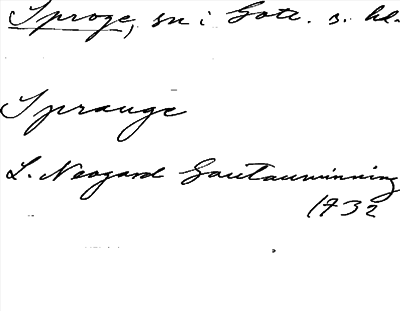 Sproge, sn i Gotl. s. hd.
Sprauge
L. Neogard Gautauminning
1732